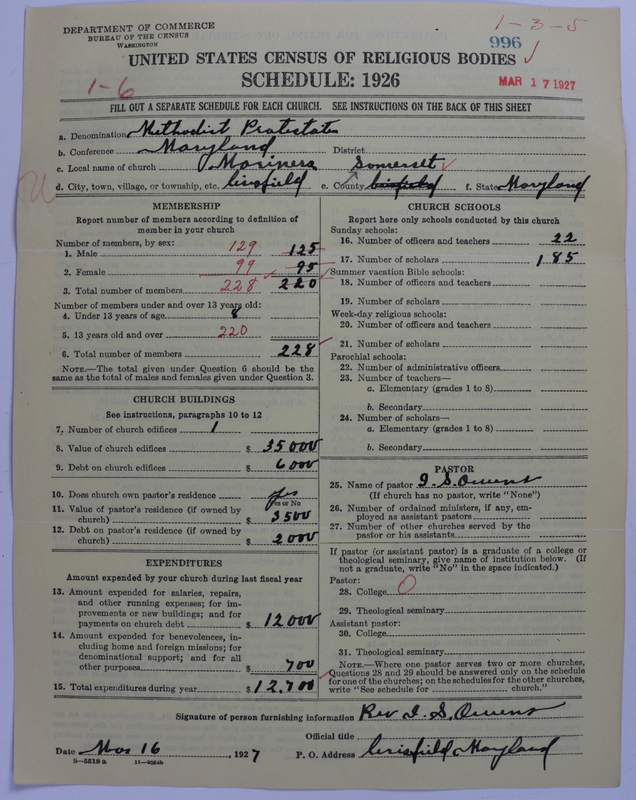 DEPARTMENT OF COMMERCE
BUREAU OF THE CENSUS
WASHINGTON
1-3-5
996
UNITED STATES CENSUS OF RELIGIOUS BODIES
SCHEDULE: 1926
MAR 17 1927
1-6
FILL OUT A SEPARATE SCHEDULE FOR EACH CHURCH. SEE INSTRUCTIONS ON THE BACK OF THIS SHEET
a. Denomination Methodist Protestate
b. Conference Maryland District
c. Local name of church Mariners Somerset
d. City, town, village, or township, etc. Crisfield e. County Crisfield f. State Maryland
MEMBERSHIP
Report number of members according to definition of
member in your church
Number of members, by sex:
1. Male 129 125
2. Female 99 95
3. Total number of members 228 220
Number of members under and over 13 years old:
4. Under 13 years of age 8
5. 13 years old and over 220
6. Total number of members 228
NOTE.—The total given under Question 6 should be the
same as the total of males and females given under Question 3.
CHURCH BUILDINGS
See instructions, paragraphs 10 to 12
7. Number of church edifices 1
8. Value of church edifices $ 35000
9. Debt on church edifices $ 6000
10. Does church own pastor's residence yes
Yes or No
11. Value of pastor's residence (if owned by
church) $ 3500
12. Debt on pastor's residence (if owned by
church) $ 2000
EXPENDITURES
Amount expended by your church during last fiscal year
13. Amount expended for salaries, repairs,
and other running expenses; for im-
provements or new buildings; and for
payments on church debt $ 12000
14. Amount expended for benevolences, in-
cluding home and foreign missions; for
denominational support; and for all
other purposes $ 700
15. Total expenditures during year $ 12,700
CHURCH SCHOOLS
Report here only schools conducted by this church
Sunday schools:
16. Number of officers and teachers 22
17. Number of scholars 185
Summer vacation Bible schools:
18. Number of officers and teachers
19. Number of scholars
Week-day religious schools:
20. Number of officers and teachers
21. Number of scholars
Parochial schools:
22. Number of administrative officers
23. Number of teachers—
a. Elementary (grades 1 to 8)
b. Secondary
24. Number of scholars—
a. Elementary (grades 1 to 8)
b. Secondary
PASTOR
25. Name of pastor I. S. Owens
(If church has no pastor, write "None")
26. Number of ordained ministers, if any, em-
ployed as assistant pastors
27. Number of other churches served by the
pastor or his assistants
If pastor (or assistant pastor) is a graduate of a college or
theological seminary, give name of institution below. (If
not a graduate, write "No" in the space indicated.)
Pastor:
28. College O
29. Theological seminary
Assistant pastor:
30. College
31. Theological seminary
NOTE.—Where one pastor serves two or more churches,
Questions 28 and 29 should be answered only on the schedule
for one of the churches; on the schedules for the other churches,
write "See schedule for church."
Signature of person furnishing information Rev I. S. Owens
Official title
Date Mar 16 1927 P. O. Address Crisfield Maryland